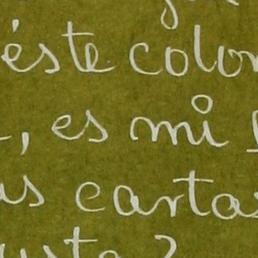 éste color
, es mi
us cartas
usta?